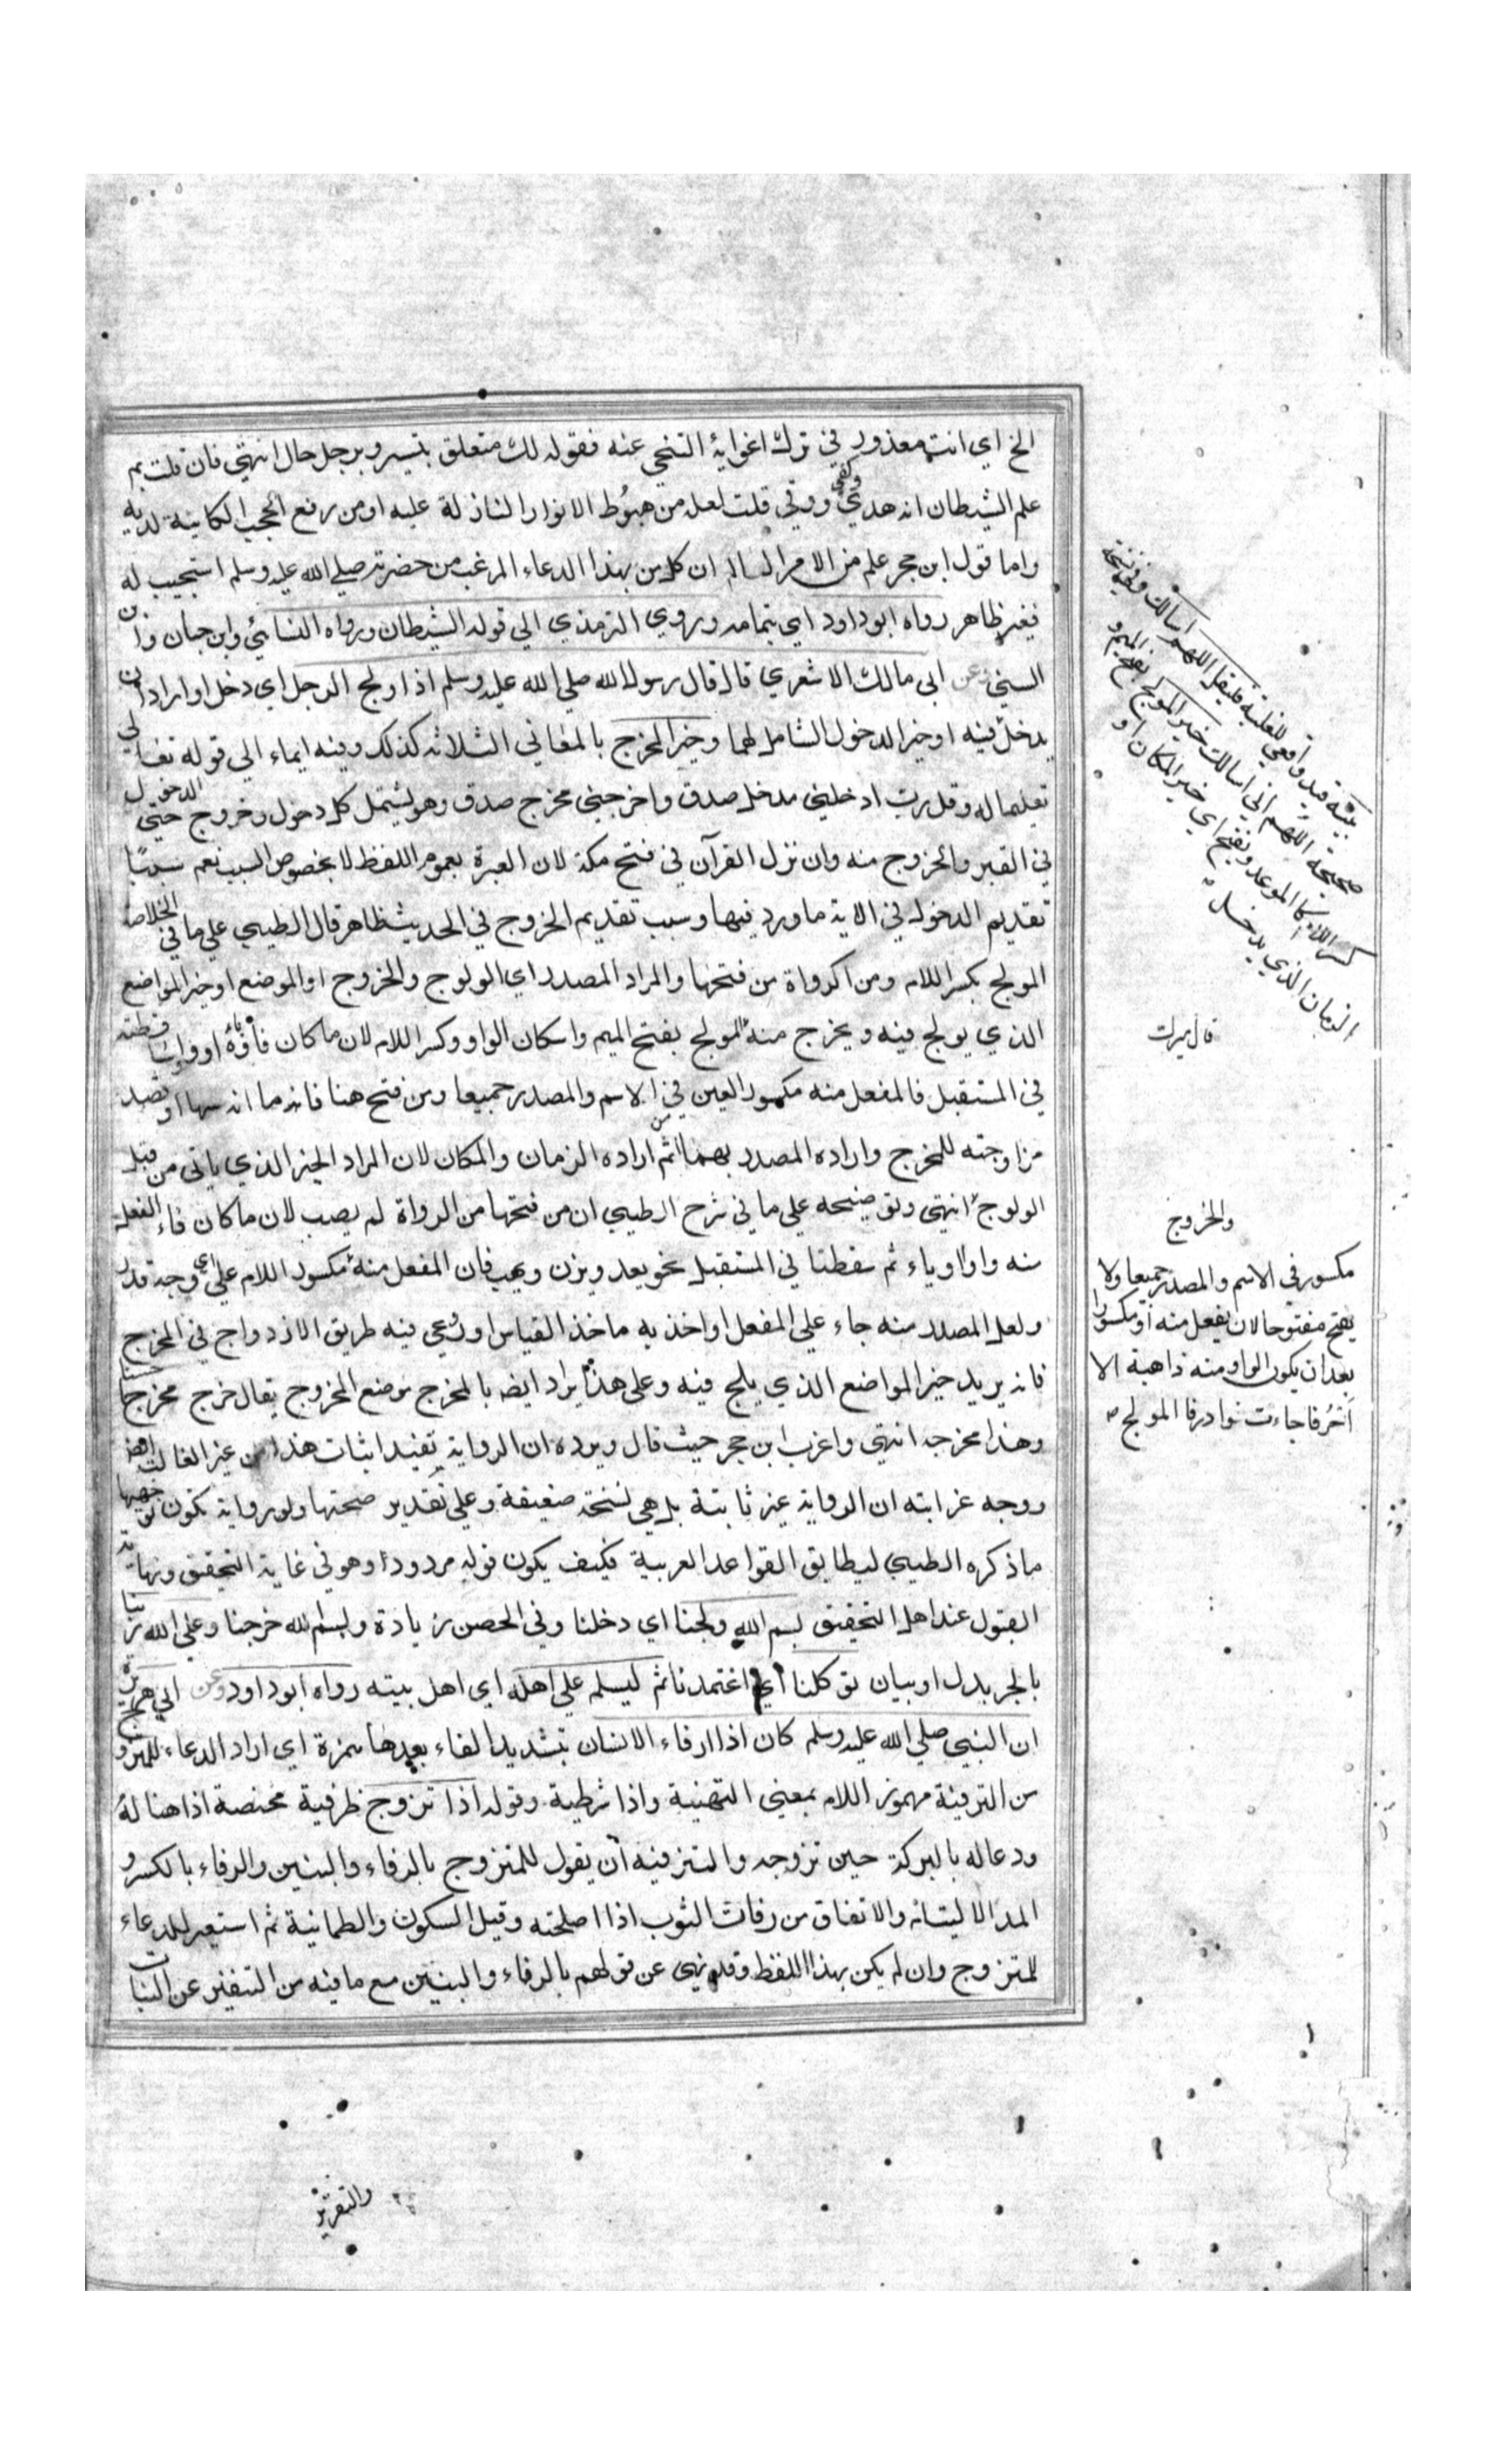 الخ اي انت معذور في ترك اغوائه التنحي عنه فقوله لك متعلق بتيسر وبرجل حال انتهى فان قلت بم
علم الشيطان انه هدي وكفي ووقي قلت لعله من هبوط الانوار النازلة عليه او من رفع الحجب الكاينة لديه
واما قول ابن حجر علم من الامر السالم ان كل من بهذا الدعاء المرغب من حضرته صلي الله عليه وسلم استجيب له
فغير ظاهر رواه ابو داود اي بتمامه وروي الترمذي الي قوله الشيطان ورواه النسائي وابن حبان وابن
السني وعن ابي مالك الاشعري قال قال رسول الله صلي الله عليه وسلم اذا ولج الرجل اي دخل او اراد ان
يدخل فيه او خير الدخول الشامل لهما وخير المخرج بالمعاني الثلاثه كذلك وفيه ايماء الي قوله تعالي
تعليما له وقل رب ادخلني مدخل صدق واخرجني مخرج صدق وهو يشتمل كل دخول وخروج حتي الدخول
في القبر والخروج منه وان نزل القرآن في فتح مكة لان العبرة بعموم اللفظ لا بخصوص السبب نعم سبب
تقديم الدخول في الاية ما ورد فيها وسبب تقديم الخروج في الحديث ظاهر قال الطيبي علي ما في الخلاصة
المولج بكسر اللام ومن الرواة من فتحها والمراد المصدر اي الولوج والخروج او الموضع او خير المواضع
الذي يولج فيه ويخرج منه المولج بفتح الميم واسكان الواو وكسر اللام لان ما كان فاؤه ياء او واوا سقطته
في المستقبل فالمفعل منه مكسور العين في الاسم والمصدر جميعا ومن فتح هنا فانه ما انه سها او قصد
مزاوجته للمخرج واراده المصدر بهما اتم من اراده الزمان والمكان لان المراد الخير الذي ياتي من قبل
الولوج انتهى وتوضيحه علي ما في شرح الطيبي ان من فتحها من الرواة لم يصب لان ما كان فاء الفعل
منه واوا او ياء ثم سقطتا في المستقبل نحو يعد ويزن ويهب فان المفعل منه مكسور اللام علي اي وجه قدر
ولعل المصدر منه جاء علي المفعل او اخذ به ماخذ القياس او روعي فيه طريق الازدواج في المخرج
فانه يريد خير المواضع الذي يلج فيه وعلي هذا يراد ايضه بالمخرج موضع الخروج يقال خرج مخرجا حسنا
وهذا مخرجه انتهى واغرب ابن حجر حيث قال ويرده ان الرواية تفيد اثبات هذا من غير الغالب اهـ
ووجه غرابته ان الرواية غير ثابتة بل هي نسخة ضعيفة وعلي تقدير صحتها ولو رواية تكون توجيهها
ما ذكره الطيبي ليطابق القواعد العربية فكيف يكون قوله مردودا وهو في غاية التحقيق ونهاية
القبول عند اهل التحقيق بسم الله ولجنا اي دخلنا وفي الحصن زيادة وبسم الله خرجنا وعلي الله ربنا
بالجر بدل او بيان توكلنا اي اعتمدنا ثم ليسلم علي اهله اي اهل بيته رواه ابو داود وعن ابي هريرة
ان النبي صلي الله عليه وسلم كان اذا رفاء الانسان بتشديد الفاء بعدها همزة اي اراد الدعاء للمتزوج
من الترفئة مهموز اللام بمعني التهنية واذا شرطية وقوله اذا تزوج ظرفية مختصة اذا هنا له
ودعا له بالبركة حين تزوجه والترفيه ان يقول للمتزوج بالرفاء والبنين والرفاء بالكسر و
المد الالتيام والاتفاق من رفات الثوب اذا اصلحته وقيل السكون والطمانية ثم استعير للدعاء
للمتزوج وان لم يكن بهذا اللفظ وقد نهي عن قولهم بالرفاء والبنين مع ما فيه من التنفير عن البنات
بيته قيد واقعي للغلبة فليقل اللهم اسالك وفي نسخة
صحيحة اللهم اني اسالك خير المولج بفتح الميم و
كسر اللام كالموعد ويفتح اي خير المكان او
الزمان الذي يدخل
قال ميرك
والخروج
مكسور في الاسم والمصدر جميعا ولا
يفتح مفتوحا لان يفعل منه او مكسورا
بعد ان يكون الواو منه ذاهبة الا
احرفا جاءت نوادر فالمولج
والتقرير